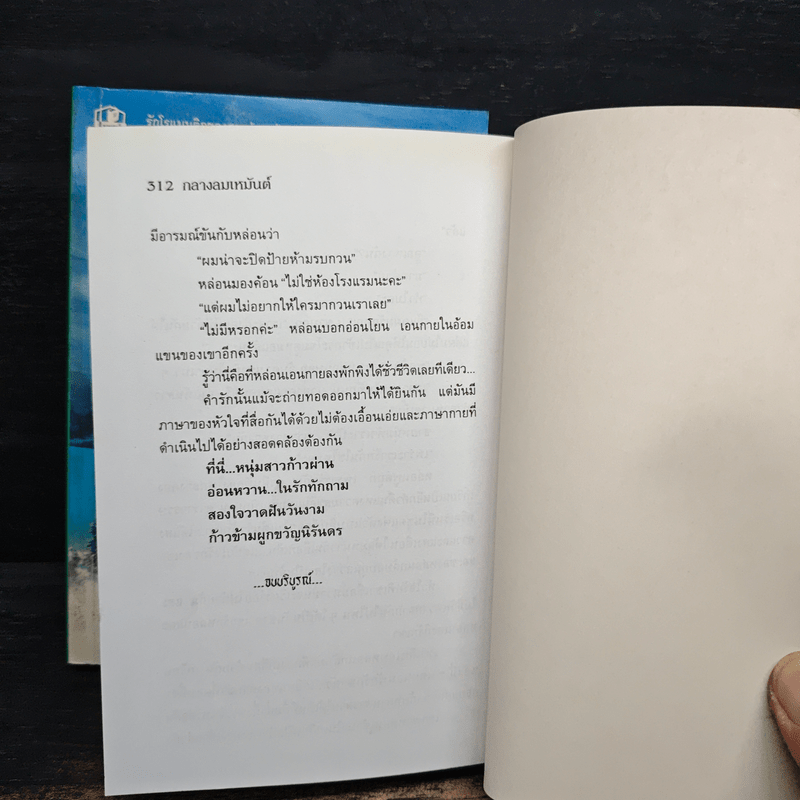 รักโรแมนติก
312 กลางลมเหมันต์
มีอารมณ์ขันกับหล่อนว่า
“ผมน่าจะปิดป้ายห้ามรบกวน”
หล่อนมองค้อน “ไม่ใช่ห้องโรงแรมนะคะ”
“แต่ผมไม่อยากให้ใครมากวนเราเลย”
“ไม่มีหรอกค่ะ” หล่อนบอกอ่อนโยน เอนกายในอ้อม
แขนของเขาอีกครั้ง
รู้ว่านี่คือที่หล่อนเอนกายลงพักพิงได้ชั่วชีวิตเลยทีเดียว...
คำรักนั้นแม้จะถ่ายทอดออกมาให้ได้ยินกัน แต่มันมี
ภาษาของหัวใจที่สื่อกันได้ด้วยไม่ต้องเอื้อนเอ่ยและภาษากายที่
ดำเนินไปได้อย่างสอดคล้องต้องกัน
ที่นี่...หนุ่มสาวก้าวผ่าน
อ่อนหวาน...ในรักทักถาม
สองใจวาดฝันวันงาม
ก้าวข้ามผูกขวัญนิรันดร
...จบบริบูรณ์...